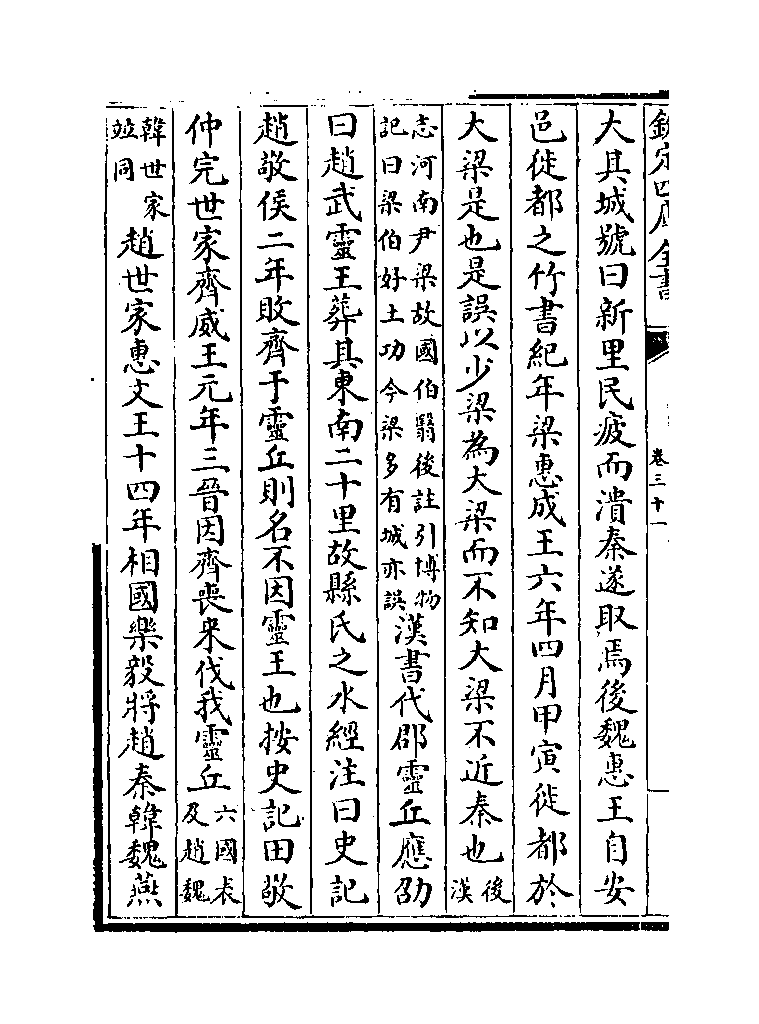 欽定四庫全書
卷三十一
大其城號曰新里民疲而潰秦遂取焉後魏惠王自安
邑徙都之竹書紀年梁惠成王六年四月甲寅徙都於
大梁是也是誤以少梁為大梁而不知大梁不近秦也後漢
志河南尹梁故國伯翳後註引博物
記曰梁伯好土功今梁多有城亦誤漢書代郡靈丘應劭
曰趙武靈王葬其東南二十里故縣氏之水經注曰史記
趙敬侯二年敗齊于靈丘則名不因靈王也按史記田敬
仲完世家齊威王元年三晉因齊喪來伐我靈丘六國表
及趙魏
韓世家
竝同趙世家惠文王十四年相國樂毅將趙秦韓魏燕